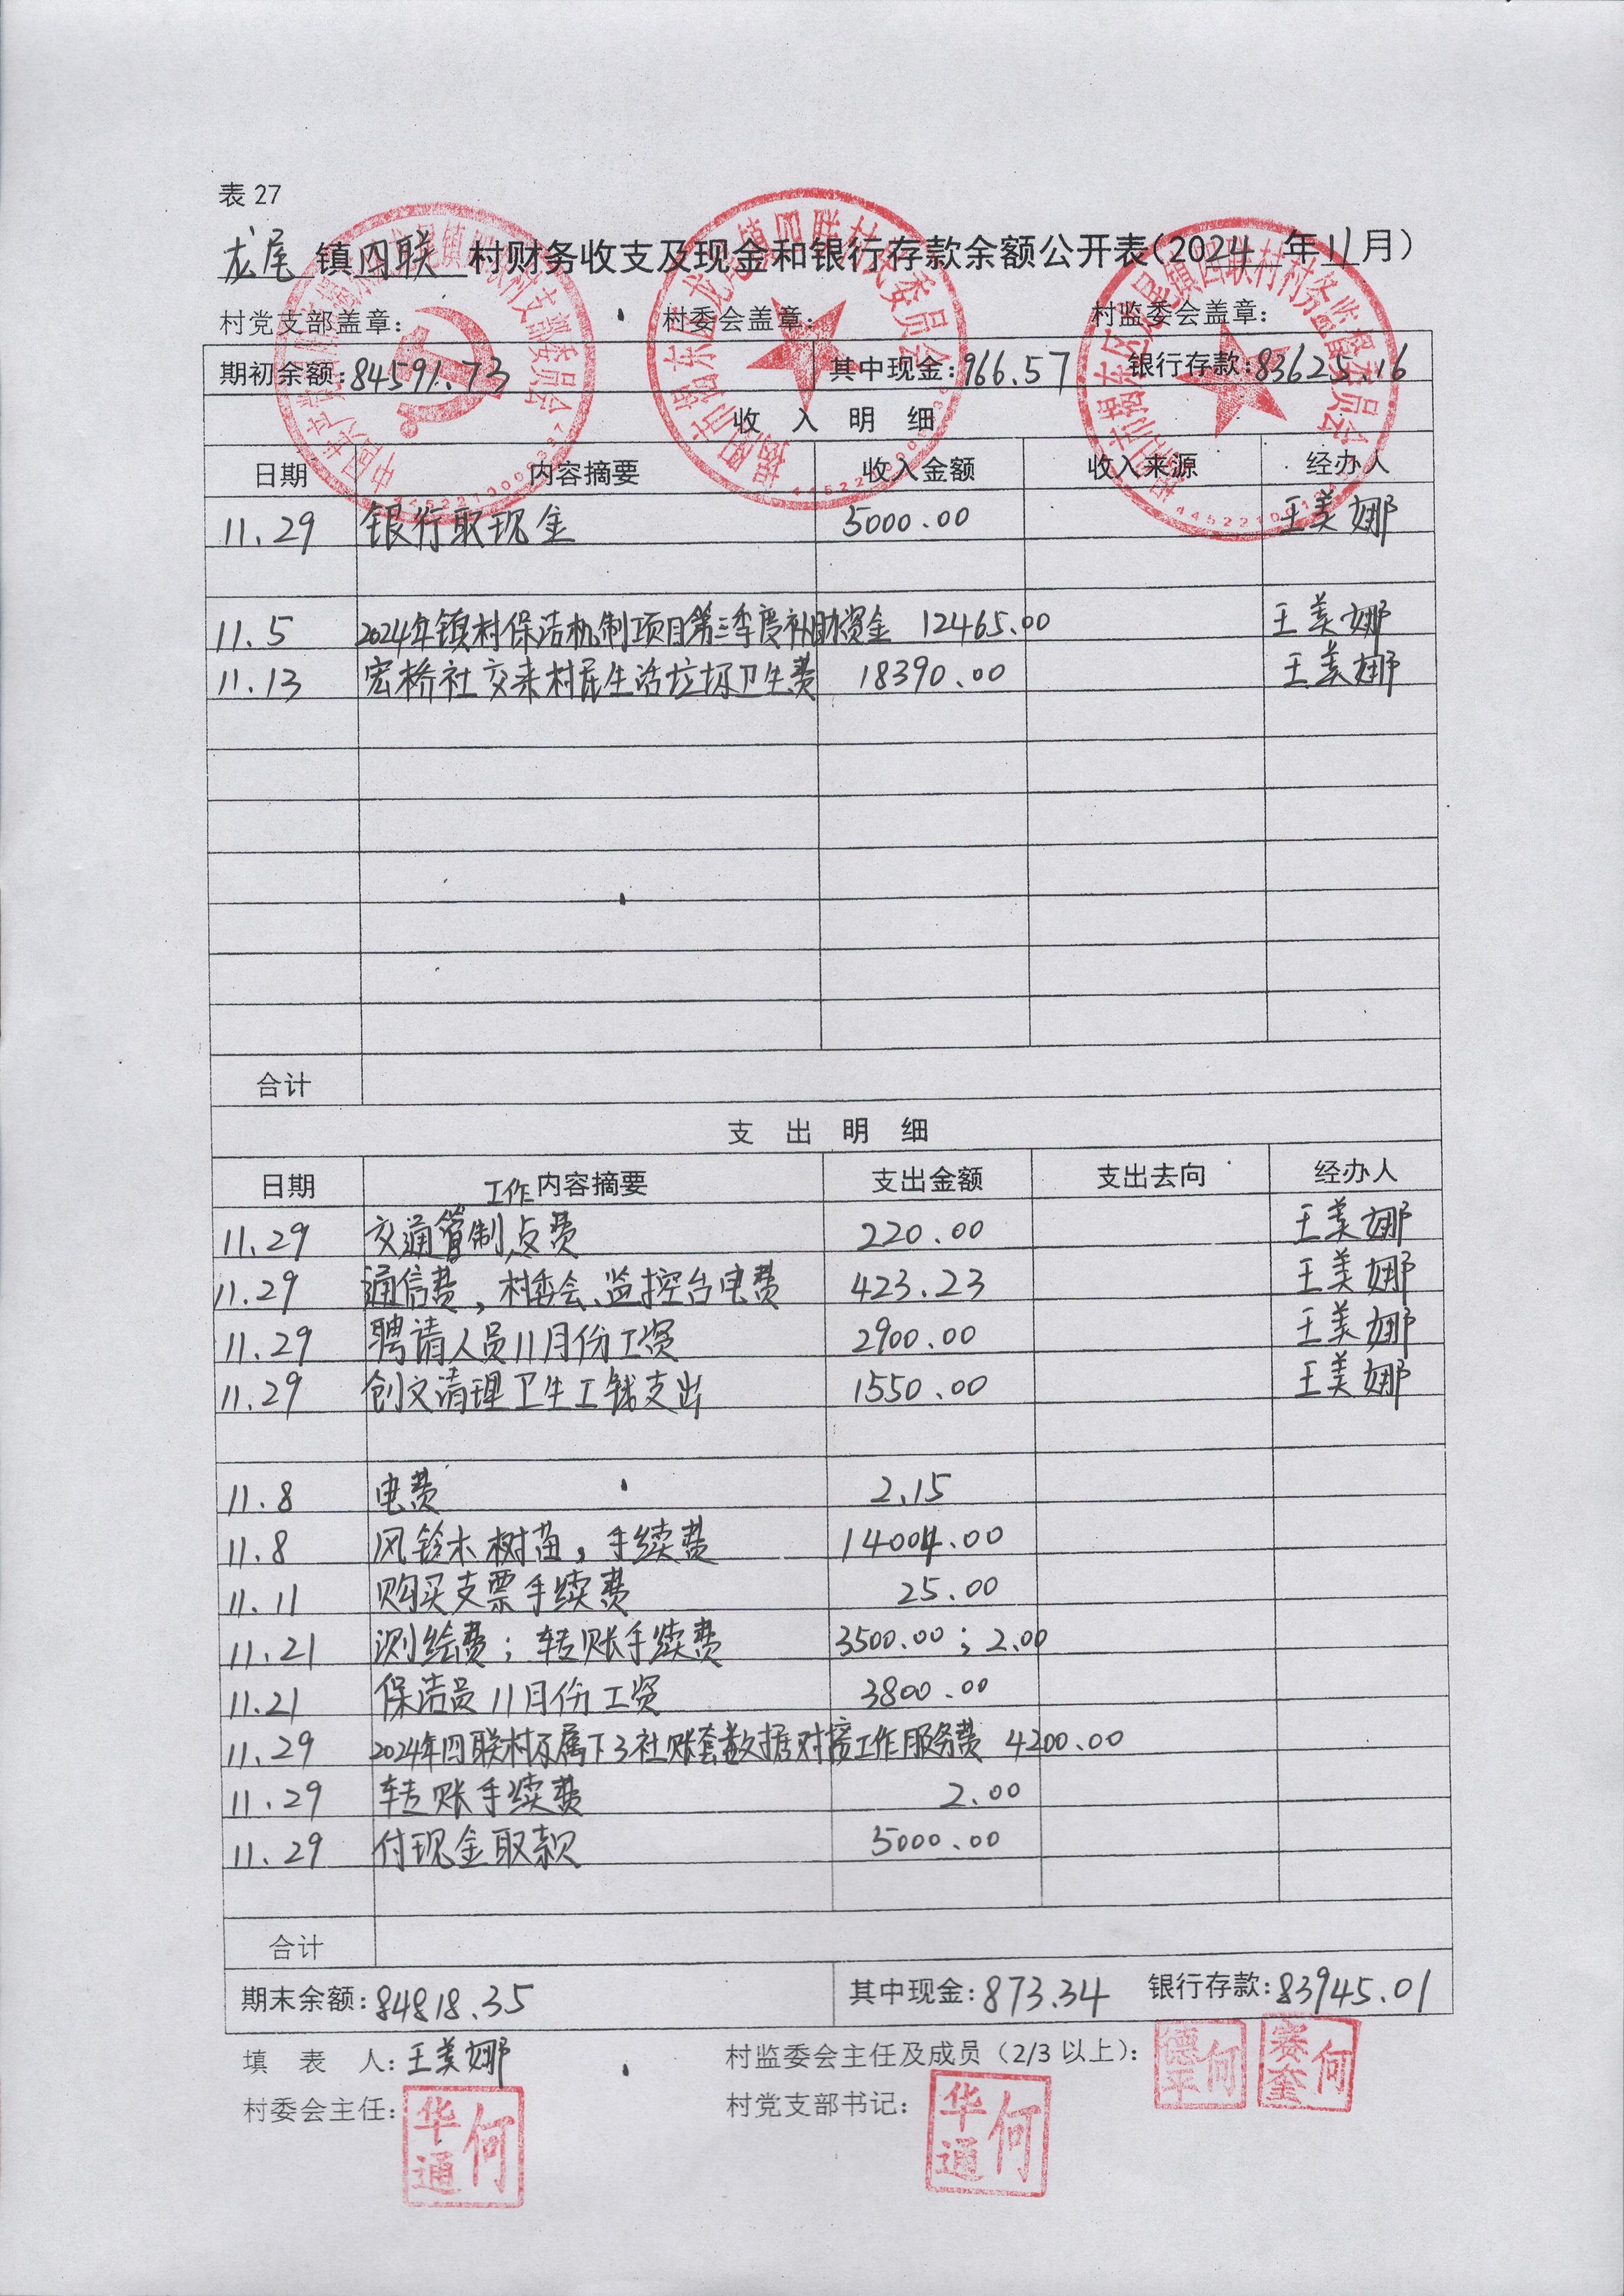 表 27
龙尾 镇四联 村财务收支及现金和银行存款余额公开表(2024 年11月)
村党支部盖章: 村委会盖章: 村监委会盖章:
期初余额:84591.73 其中现金:966.57 银行存款:83625.16
收 入 明 细
日期 内容摘要 收入金额 收入来源 经办人
11.29 银行取现金 5000.00 王美娜
11.5 2024年镇村保洁机制项目第三季度补助资金 12465.00 王美娜
11.13 宏桥社交来村民生活垃圾卫生费 18390.00 王美娜
合计
支 出 明 细
日期 工作内容摘要 支出金额 支出去向 经办人
11.29 交通管制点费 220.00 王美娜
11.29 通信费,村委会、监控台电费 423.23 王美娜
11.29 聘请人员11月份工资 2900.00 王美娜
11.29 创文清理卫生工钱支出 1550.00 王美娜
11.8 电费 2.15
11.8 风铃木树苗,手续费 14004.00
11.11 购买支票手续费 25.00
11.21 测绘费;转账手续费 3500.00;2.00
11.21 保洁员11月份工资 3800.00
11.29 2024年四联村及属下3社账套数据对接工作服务费 4200.00
11.29 转账手续费 2.00
11.29 付现金取款 5000.00
合计
期末余额:84818.35 其中现金:873.34 银行存款:83945.01
填 表 人:王美娜 村监委会主任及成员(2/3 以上): 何德平 何赛奎
村委会主任: 何华通 村党支部书记: 何华通